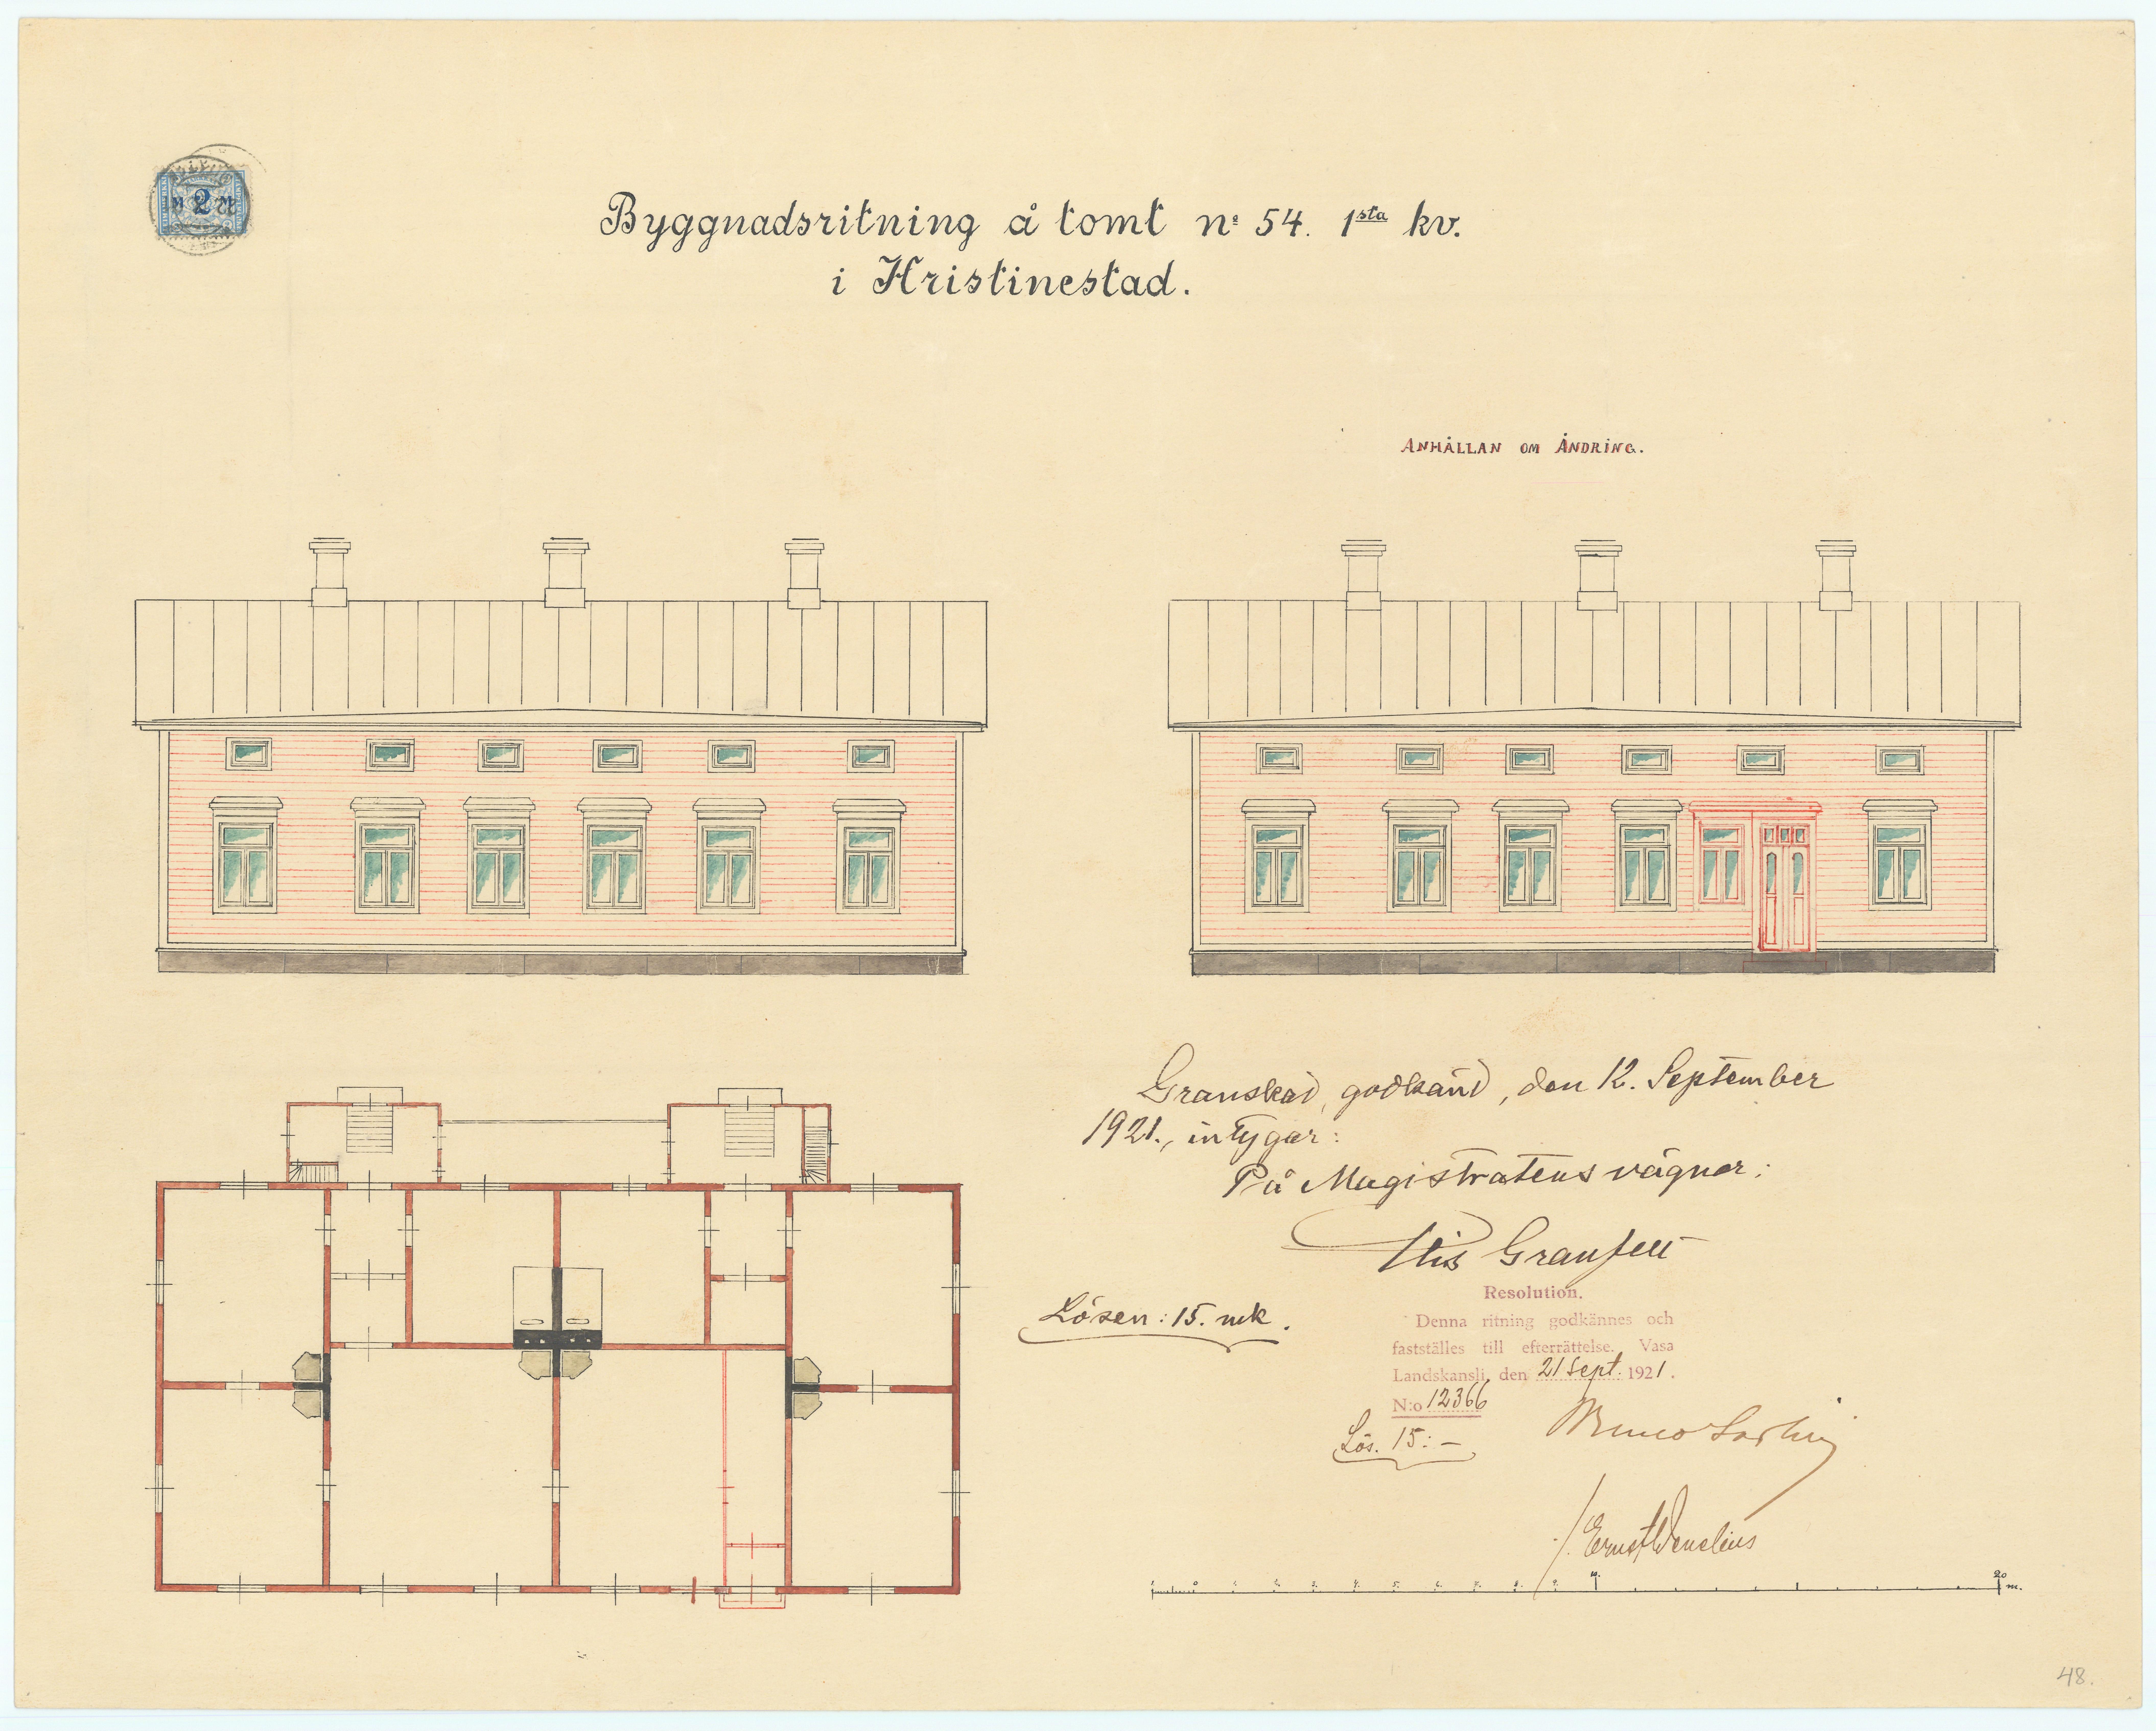 2
Byggnadsritning å tomt nº 54. 1sta kv.
i Kristinestad.
ANHÅLLAN OM ÄNDRING.
Granskad, godkänd, den 12. September
1921., intygar:
På Magistratens vägnar:
Granfelt
Lösen: 15. mk.
Resolution.
Denna ritning godkännes och
fastställes till efterrättelse. Vasa
Landskansli, den 21 Sept. 1921.
N:o 12366
Lös. 15:–
Ernst
20
m.
48.